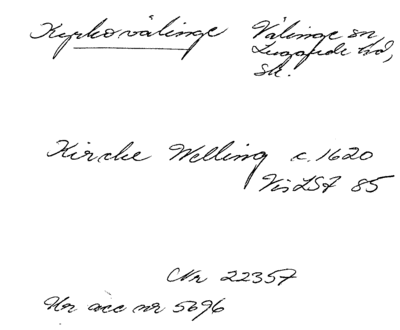 Kyrkovälinge Välinge sn,
Luggude hd,
Sk.
Kirche Welling c. 1620
Vis LSF 85
Nr 22357
Ur acc nr 5696